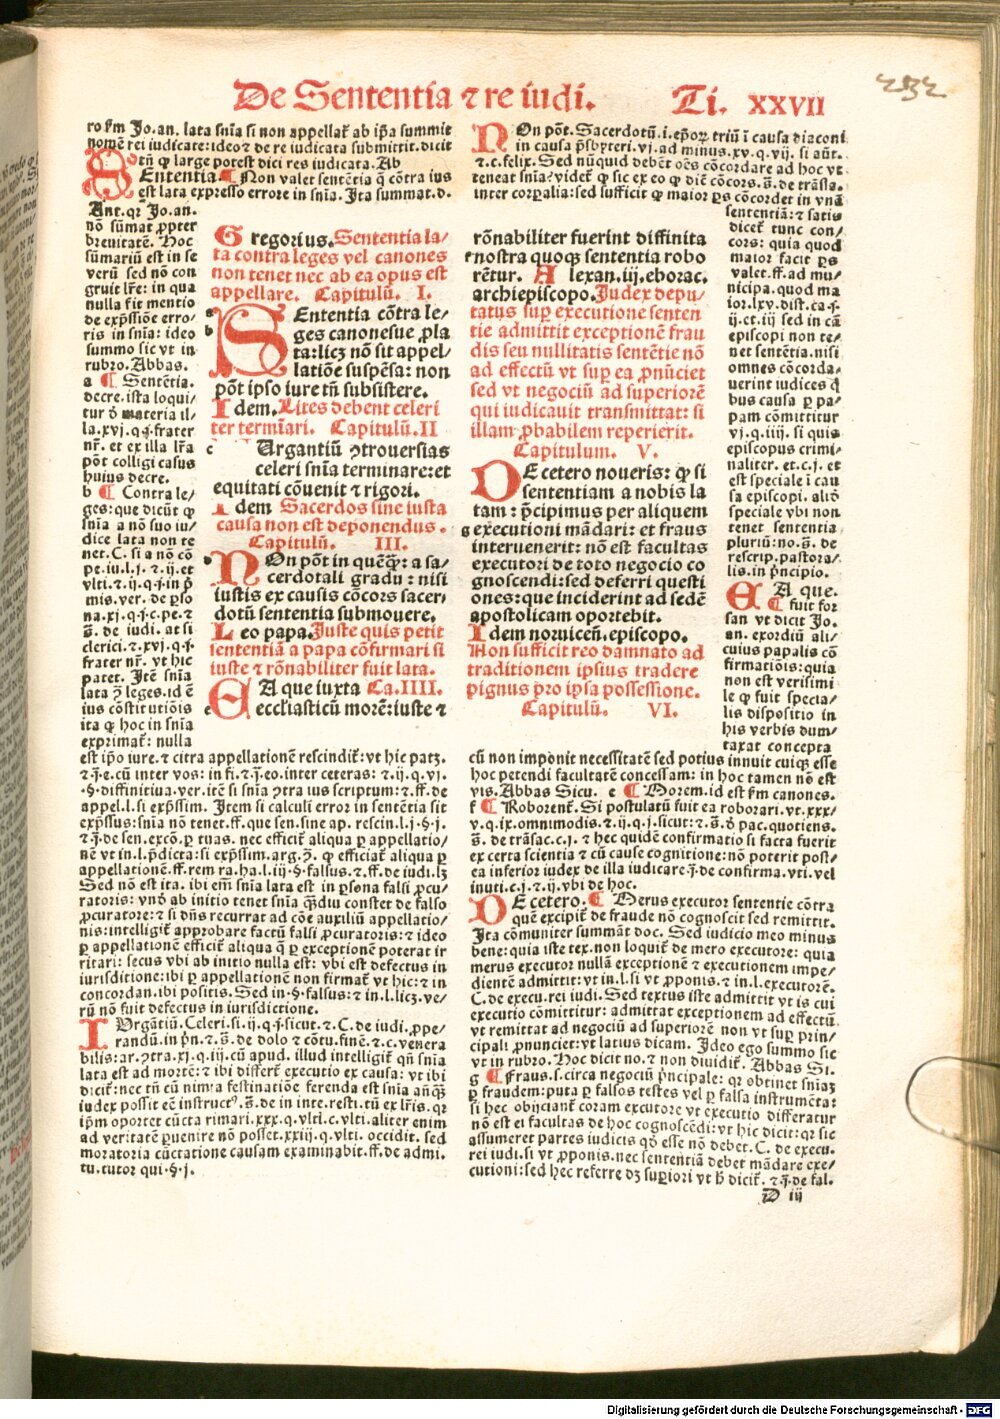 De Sententia ⁊ re iudi.
Ti. XXVII
232
ro fm̄ Jo. an. lata snīa si non appellat̄ ab ip̄a summit
nomē rei iudicate: ideo ⁊ de re iudicata submittit. dicit
tn̄ ꝙ large potest dici res iudicata. Ab
SEntentia. Non valet sentētia q̄ cōtra ius
est lata expresso errore in snīa. Ita summat. d.
Ant. qr̄ Jo. an.
nō sūmat ꝓpter
breuitatē. Hoc
sūmariū est in se
verū sed nō con
gruit lr̄e: in qua
nulla fit mentio
de exp̄ssiōe erro/
ris in snīa: ideo
summo sic vt in
rubro. Abbas.
a Sentētia.
decre. ista loqui/
tur ō materia il/
la. xvj. q. j. frater
nr̄. et ex illa lr̄a
pōt colligi casus
huius decre.
b Contra le/
ges: que dicūt ꝙ
snīa a nō suo iu/
dice lata non te
net. C. si a nō cō
pe. iu. l. j. ⁊ ij. et
vlti. ⁊ ij. q. j. in p̄
mis. ver. de ꝑso
na. xj. q. j. c. pe. ⁊
s̄. de iudi. at si
clerici. ⁊ xvj. q. j.
frater nr̄. vt hic
patet. Itē snīa
lata ꝯ leges. id ē
ius cōstitutiōis
ita ꝙ hoc in snīa
exprimat̄: nulla
est ip̄o iure. ⁊ citra appellationē rescindit̄: vt hic patꝫ.
⁊ j̄. e. cū inter vos: in fi. ⁊ j̄. eo. inter ceteras: ⁊. ij. q. vj.
§. diffinitiua. ver. itē si snīa ꝯtra ius scriptum: ⁊. ff. de
appel. l. si exp̄ssim. Item si calculi error in sentētia sit
exp̄ssus: snīa nō tenet. ff. que sen. sine ap. rescin. l. j. §. j.
⁊ j̄. de sen. excō. ꝑ tuas. nec efficit̄ aliqua ꝑ appellatio/
nē vt in. l. p̄dicta: si exp̄ssim. arg. ꝯ. ꝙ efficiat̄ aliqua ꝑ
appellationē. ff. rem ra. ha. l. iij. §. falsus. ⁊. ff. de iudi. lꝫ
Sed nō est ita. ibi em̄ snīa lata est in ꝑsona falsi ꝓcu/
ratoris: vnō ab initio tenet snīa q̄ꝫdiu constet de falso
ꝓcuratore: ⁊ si dn̄s recurrat ad cōe auxiliū appellatio/
nis: intelligit̄ approbare factū falsi ꝓcuratoris: ⁊ ideo
ꝑ appellationē efficit̄ aliqua q̄ ꝑ exceptionē poterat ir
ritari: secus vbi ab initio nulla est: vbi est defectus in
iurisditione: ibi ꝑ appellationē non firmat̄ vt hic: ⁊ in
concordan. ibi positis. Sed in. §. falsus: ⁊ in. l. licꝫ. ve/
rū nō fuit defectus in iurisdictione.
IUrgātiū. Celeri. si. ij. q. j. sicut. ⁊. C. de iudi. ꝓpe/
randū. in p̄n. ⁊. s̄. de dolo ⁊ cōtu. finē. ⁊. c. venera
bilis: ar. ꝯtra. xj. q. iij. cū apud. illud intelligit̄ qn̄ snīa
lata est ad mortē: ⁊ ibi differt̄ executio ex causa: vt ibi
dicit̄: nec tn̄ cū nimia festinatiōe ferenda est snīa an̄q̄ꝫ
iudex possit eē instruct⁹. s̄. de in inte. resti. tū ex lr̄is. qr
ip̄m oportet cūcta rimari. xxx. q. vlti. c. vlti. aliter enim
ad veritatē ꝑuenire nō posset. xxiij. q. vlti. occidit. sed
moratoria cūctatione causam examinabit. ff. de admi.
tu. tutor qui. §. j.
Gregorius. Sententia la/
ta contra leges vel canones
non tenet nec ab ea opus est
appellare. Capitulū. I.
SEntentia cōtra le/
ges canonesue ꝓla
ta: licꝫ nō sit appel/
latiōe suspēsa: non
pōt ipso iure tn̄ subsistere.
Idem. Lites debent celeri
ter termīari. Capitulū. II
c Urgantiū ꝯtrouersias
celeri snīa terminare: et
equitati cōuenit ⁊ rigori.
Idem Sacerdos sine iusta
causa non est deponendus.
Capitulū. III.
NOn pōt in quēq̄ꝫ: a sa/
cerdotali gradu: nisi
iustis ex causis cōcors sacer/
dotū sententia submouere.
Leo papa. Iuste quis petit
sententiā a papa cōfirmari si
iuste ⁊ rōnabiliter fuit lata.
EA que iuxta Ca. IIII.
e eccl̄iasticū morē: iuste ⁊
rōnabiliter fuerint diffinita
f nostra quoqꝫ sententia robo
rētur. Alexan. iij. eborac.
archiepiscopo. Judex depu/
tatus suꝑ executione senten
tie admittit exceptionē frau
dis seu nullitatis sentētie nō
ad effectū vt suꝑ ea ꝓnūciet
sed vt negociū ad superiorē
qui iudicauit transmittat: si
illam ꝓbabilem repererit.
Capitulum. V.
DE cetero noueris: ꝙ si
sententiam a nobis la
tam: p̄cipimus per aliquem
g executioni mādari: et fraus
interuenerit: nō est facultas
executori de toto negocio co
gnoscendi: sed deferri questi
ones: que inciderint ad sedē
apostolicam oportebit.
Idem noruicen̄. episcopo.
Non sufficit reo damnato ad
traditionem ipsius tradere
pignus pro ipsa possessione.
Capitulū. VI.
NOn pōt. Sacerdotū. i. ep̄oꝝ triū ī causa diaconi
in causa p̄sbyteri. vj. ad minus. xv. q. vij. si aūt.
⁊. c. felix. Sed nūquid debēt oēs cōcordare ad hoc vt
teneat snīa? videt̄ ꝙ sic ex eo ꝙ dic̄ cōcors. s̄. de trāsla.
inter corꝑalia: sed sufficit ꝙ maior ꝑs cōcordet in vnā
sententiā: ⁊ satis
dicet̄ tunc con/
cors: quia quod
maior facit ꝑs
valet. ff. ad mu/
nicipa. quod ma
ior. lxv. dist. ca. j.
ij. et. iij sed in cā
episcopi non te/
net sentētia. nisi
omnes cōcorda/
uerint iudices q̄
bus causa ꝑ pa/
pam cōmittitur
vj. q. iiij. si quis
episcopus crimi/
naliter. et. c. j. et
est speciale ī cau
sa episcopi. aliō
speciale vbi non
tenet sententia
pluriū: no. s̄. de
rescrip. pastora/
lis. in p̄ncipio.
EA que.
fuit for
san vt dicit Jo.
an. exordiū ali/
cuius papalis cō
firmatiōis: quia
non est verisimi
le ꝙ fuit specia/
lis dispositio in
his verbis dum/
taxat concepta
cū non imponit necessitatē sed potius innuit cuiqꝫ esse
hoc petendi facultatē concessam: in hoc tamen nō est
vis. Abbas Sicu. e Morem. id est fm̄ canones.
f Roborent̄. Si postulatū fuit ea roborari. vt. xxx/
v. q. ix. omnimodis. ⁊ ij. q. j. sicut: ⁊. s̄. ō pac. quotiens.
s̄. de trāsac. c. j. ⁊ hec quidē confirmatio si facta fuerit
ex certa scientia ⁊ cū cause cognitione: nō poterit post/
ea inferior iudex de illa iudicare. j̄. de confirma. vti. vel
inuti. c. j. ⁊. ij. vbi de hoc.
DE cetero. Merus executor sententie cōtra
quē excipit̄ de fraude nō cognoscit sed remittit.
Ita cōmuniter summāt doc. Sed iudicio meo minus
bene: quia iste tex. non loquit̄ de mero executore: quia
merus executor nullā exceptionē ⁊ executionem impe/
dientē admittit: vt in. l. si vt ꝓponis. ⁊ in. l. executorē.
C. de execu. rei iudi. Sed textus iste admittit vt is cui
executio cōmittitur: admittat exceptionem ad effectū
vt remittat ad negociū ad superiorē non vt suꝑ prin/
cipali ꝓnunciet: vt latius dicam. Ideo ego summo sic
vt in rubro. Hoc dicit no. ⁊ non diuidit̄. Abbas Si.
g Fraus. s. circa negociū p̄ncipale: qr obtinet sniaꝫ
ꝑ fraudem: puta ꝑ falsos testes vel ꝑ falsa instrumēta:
si hec obijciant̄ coram excutore vt executio differatur
nō est ei facultas de hoc cognoscēdi: vt hic dicit: qr sic
assumeret partes iudicis qō esse nō debet. C. de execu.
rei iudi. si vt ꝓponis. nec sententiā debet mādare exe/
cutioni: sed hec referre dꝫ suꝑiori vt h̄ dicit̄. ⁊ j̄. de fal.
D iij
Digitalisierung gefördert durch die Deutsche Forschungsgemeinschaft - DFG